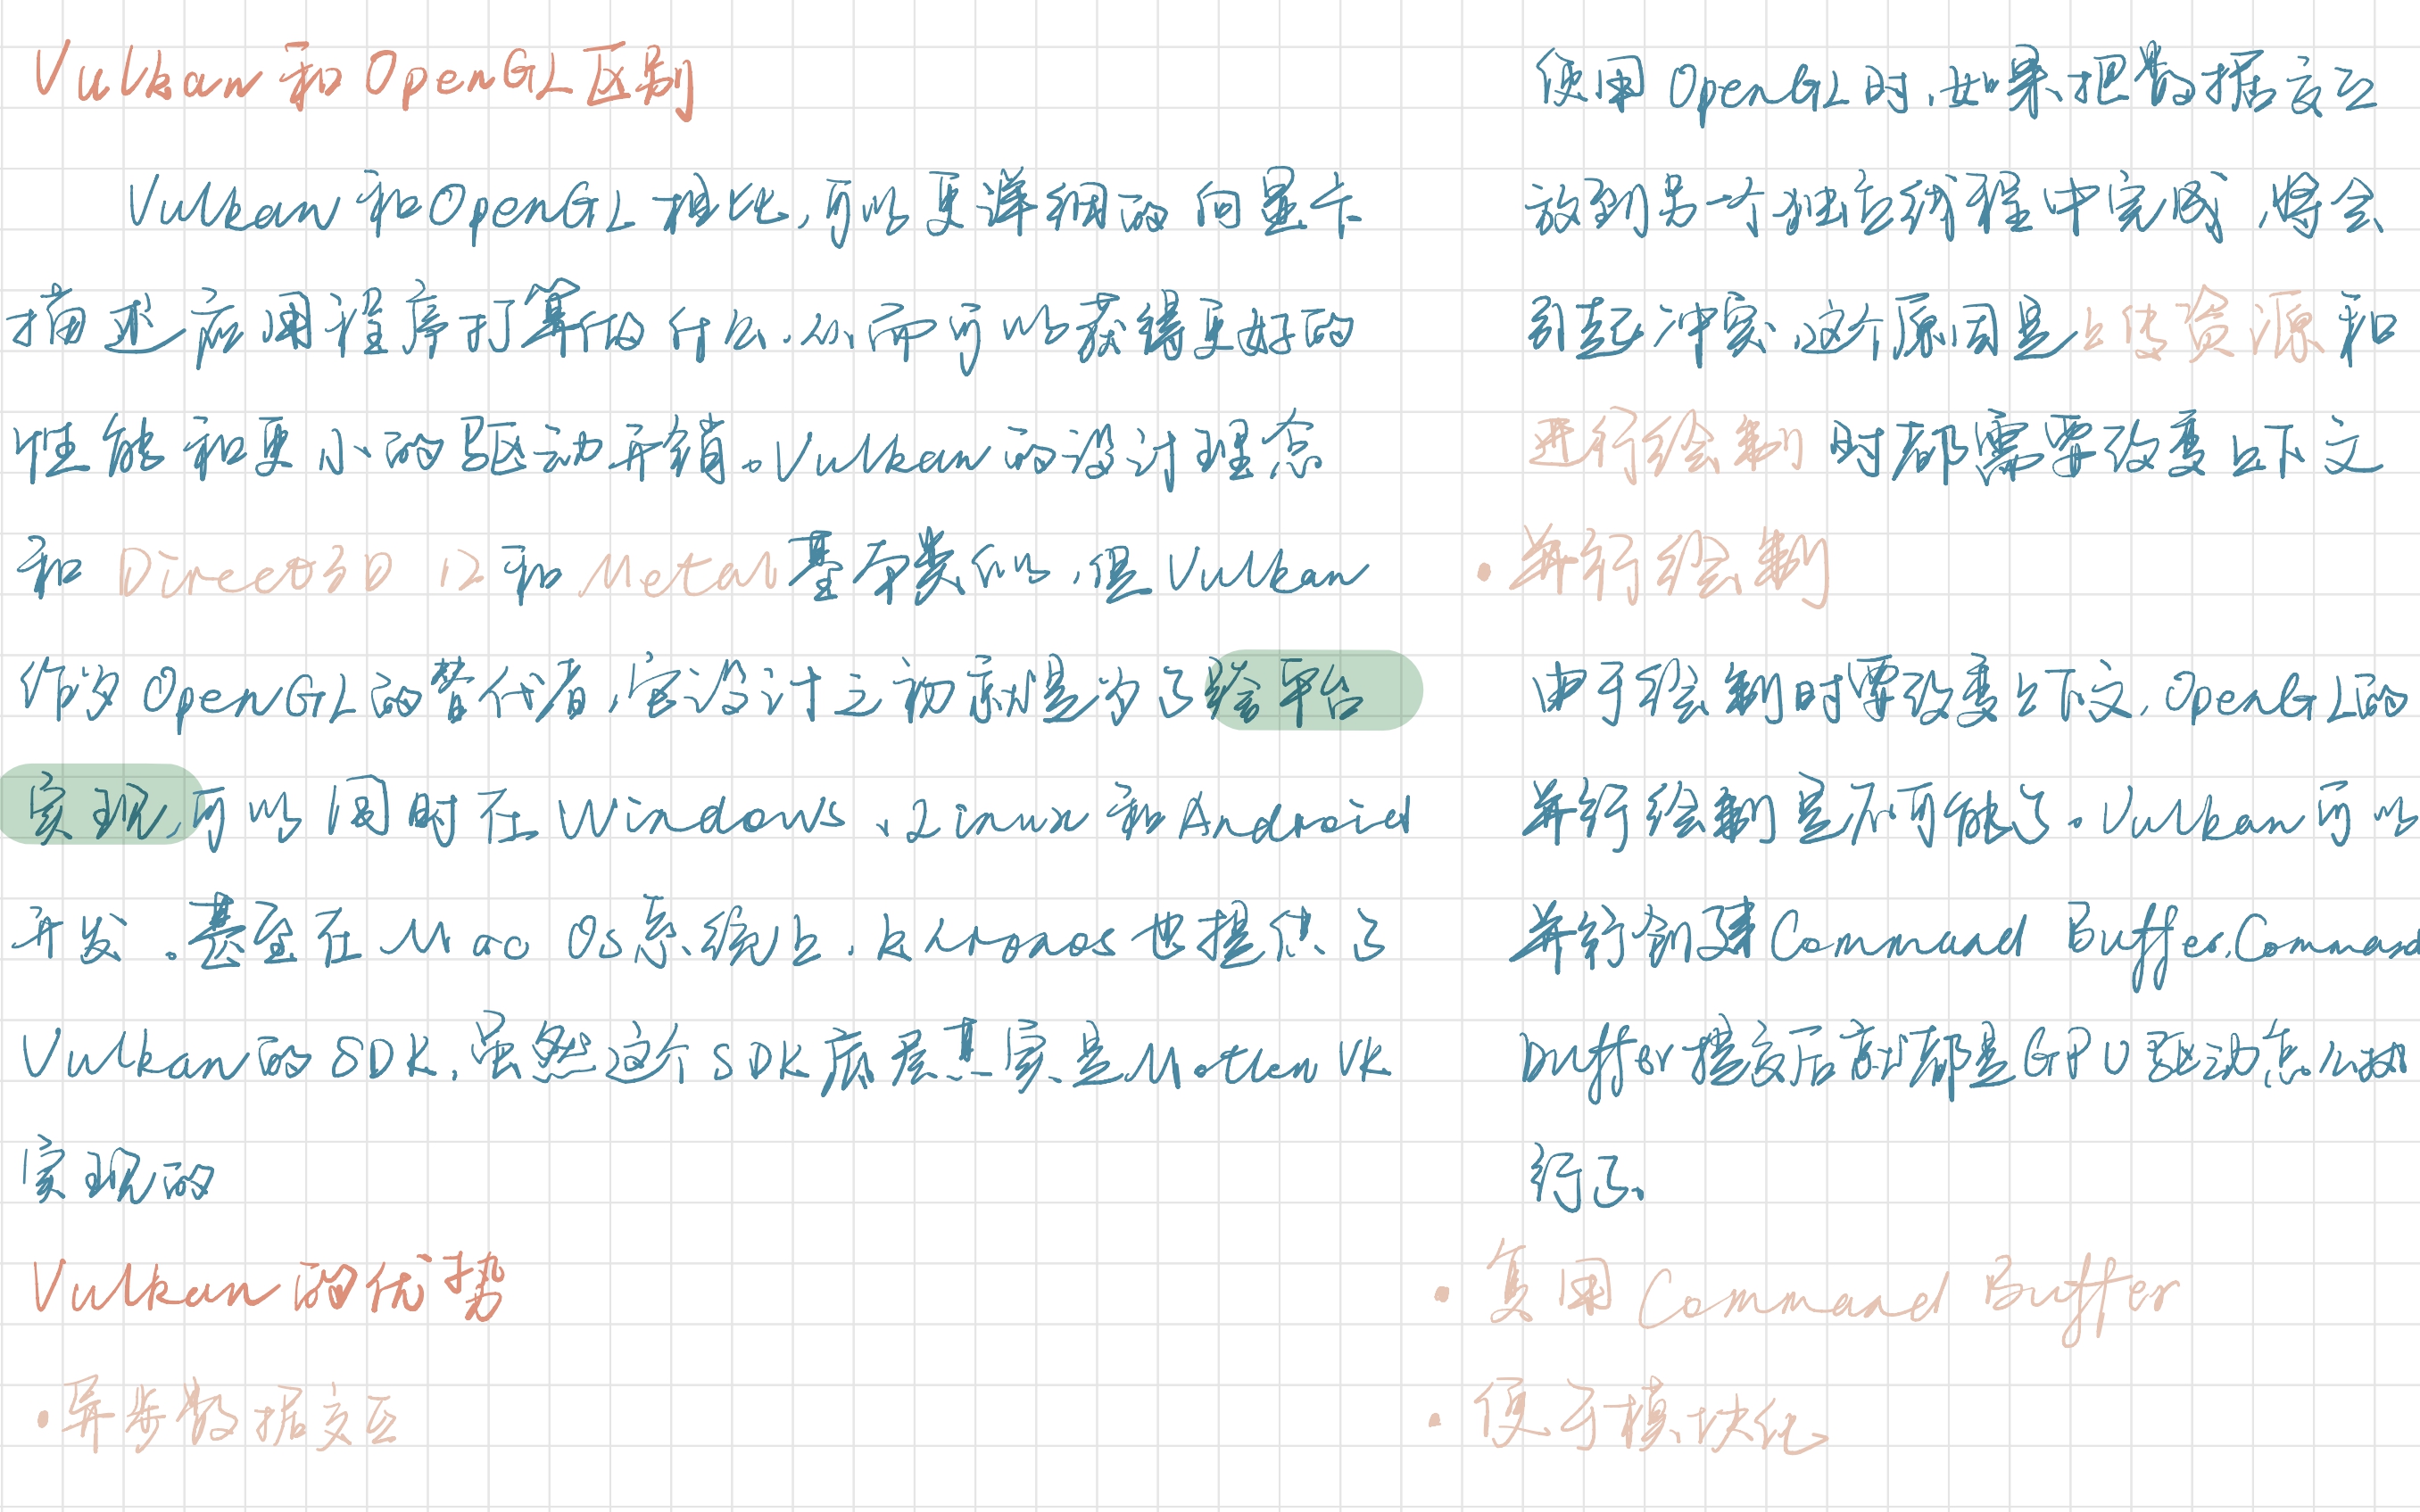 Vulkan和OpenGL区别
Vulkan和OpenGL相比,可以更详细的向显卡
描述应用程序打算做什么,从而可以获得更好的
性能和更小的驱动开销。Vulkan的设计理念
和Direct3D 12和Metal基本类似,但Vulkan
作为OpenGL的替代者,它设计之初就是为了跨平台
实现,可以同时在Windows、Linux和Android
开发。甚至在Mac Os系统上,Khronos也提供了
Vulkan的SDK,虽然这个SDK底层其实是MoltenVK
实现的
Vulkan的优势
·异步数据交互
使用OpenGL时,如果把数据交互
放到另一个独立线程中完成,将会
引起冲突,这个原因是上传资源和
进行绘制时都需要改变上下文
·并行绘制
由于绘制时要改变上下文,OpenGL的
并行绘制是不可能了。Vulkan可以
并行创建Command Buffer,Command
Buffer提交后就都是GPU驱动怎么执
行了。
·复用Command Buffer
·便于模块化